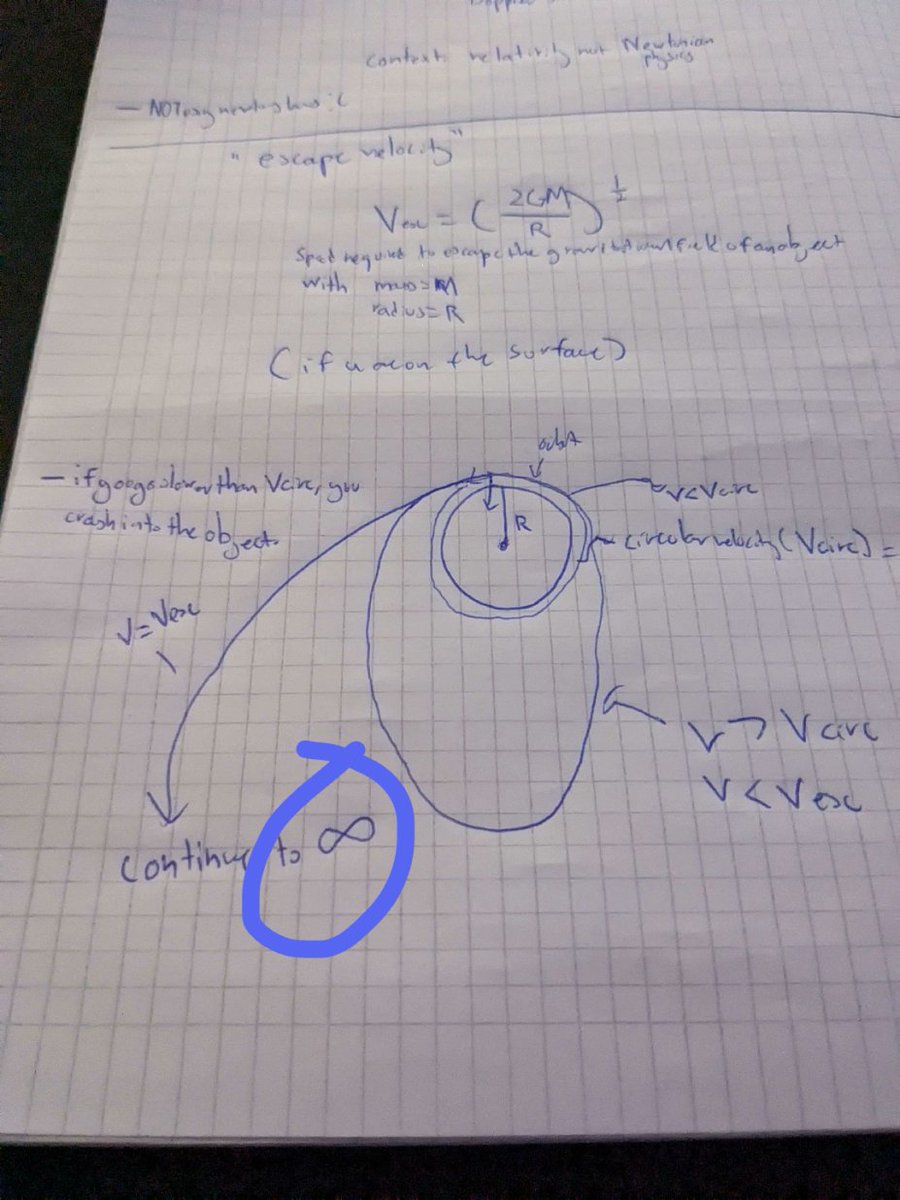 context: relativity not Newtonian
physics
— NOT any newtons laws :(
"escape velocity"
Vesc = (2GM/R)^1/2
Sped required to escape the gravitational field of an object
with mass = M
radius = R
(if u are on the surface)
orbit
— if you go slower than Vcirc, you
crash into the object.
v < Vcirc
R
circular velocity (Vcirc) =
V = Vesc
V > Vcirc
V < Vesc
continue to ∞